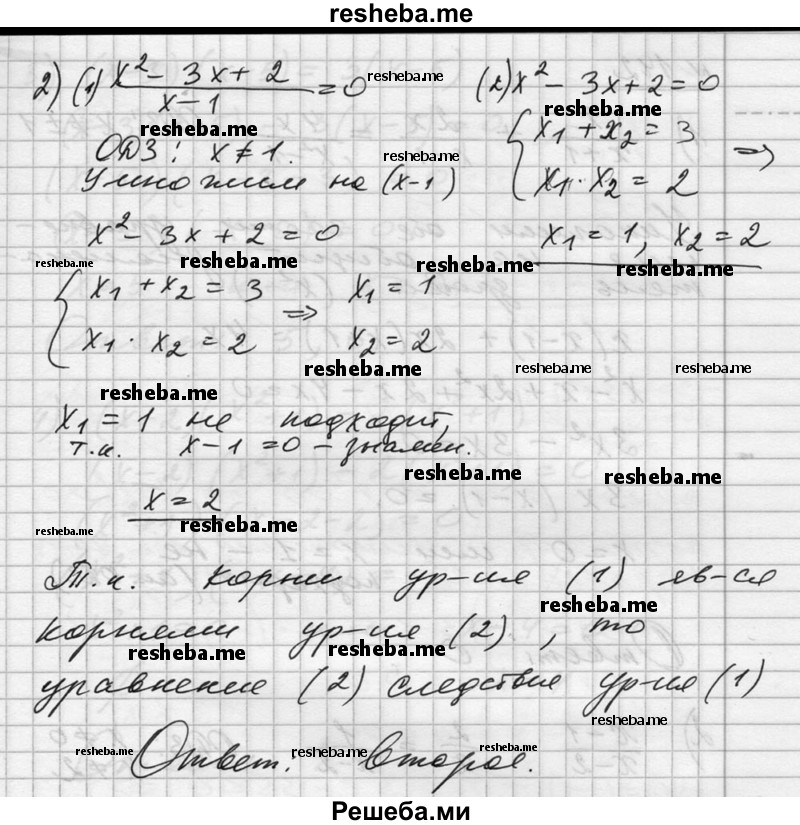 resheba.me
2) (1) x² - 3x + 2 / x - 1 = 0 resheba.me (2) x² - 3x + 2 = 0
resheba.me resheba.me
ОДЗ: x ≠ 1. resheba.me { x₁ + x₂ = 3 =>
Умножим на (x-1) x₁ · x₂ = 2
x² - 3x + 2 = 0 x₁ = 1, x₂ = 2
resheba.me resheba.me resheba.me resheba.me
{ x₁ + x₂ = 3 => x₁ = 1
x₁ · x₂ = 2 x₂ = 2
resheba.me resheba.me resheba.me
resheba.me
x₁ = 1 не подходит,
т.к. x - 1 = 0 - знамен.
resheba.me resheba.me
x = 2
resheba.me resheba.me
Т.к. корни ур-ия (1) яв-ся
resheba.me
корнями ур-ия (2), то
resheba.me resheba.me
уравнение (2) следствие ур-ия (1)
resheba.me
resheba.me resheba.me resheba.me
Ответ: второе.
Решеба.ми